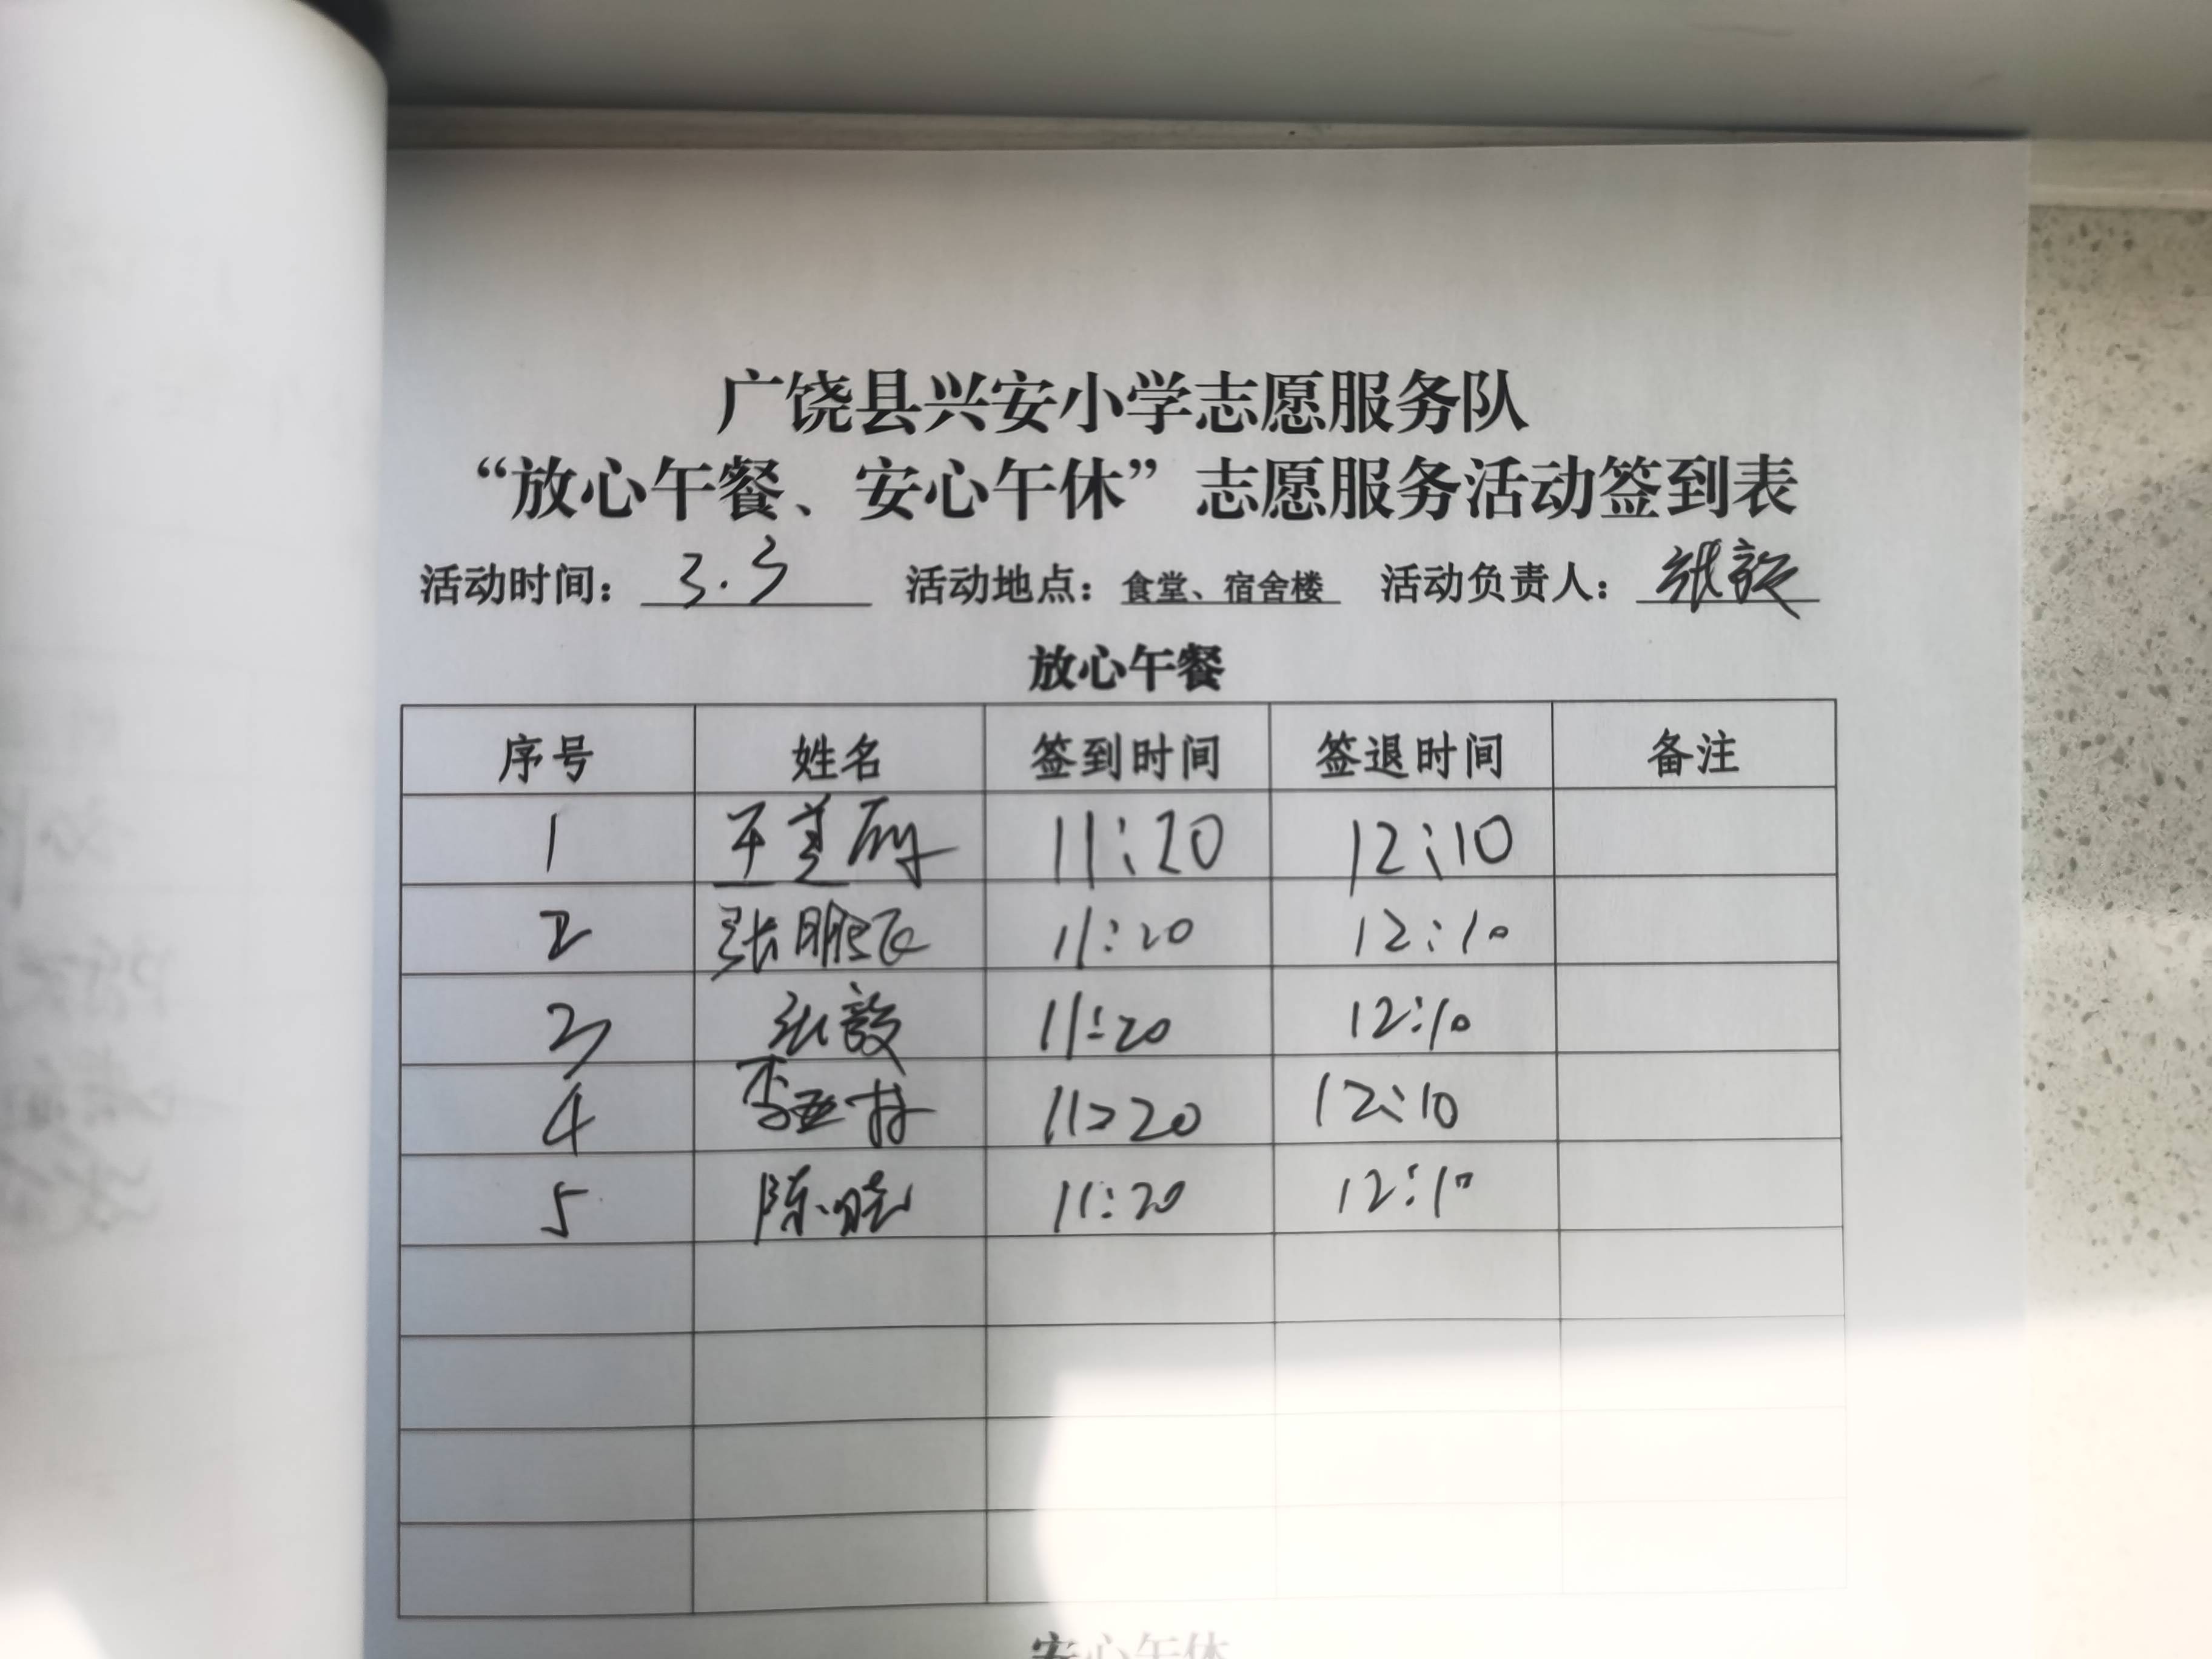 广饶县兴安小学志愿服务队
“放心午餐、安心午休”志愿服务活动签到表
活动时间： 3.3 活动地点：食堂、宿舍楼 活动负责人：张毅
放心午餐
序号 姓名 签到时间 签退时间 备注
1 11:20 12:10
2 张鹏飞 11:20 12:10
3 张毅 11:20 12:10
4 李亚 11:20 12:10
5 陈晓 11:20 12:10
安心午休